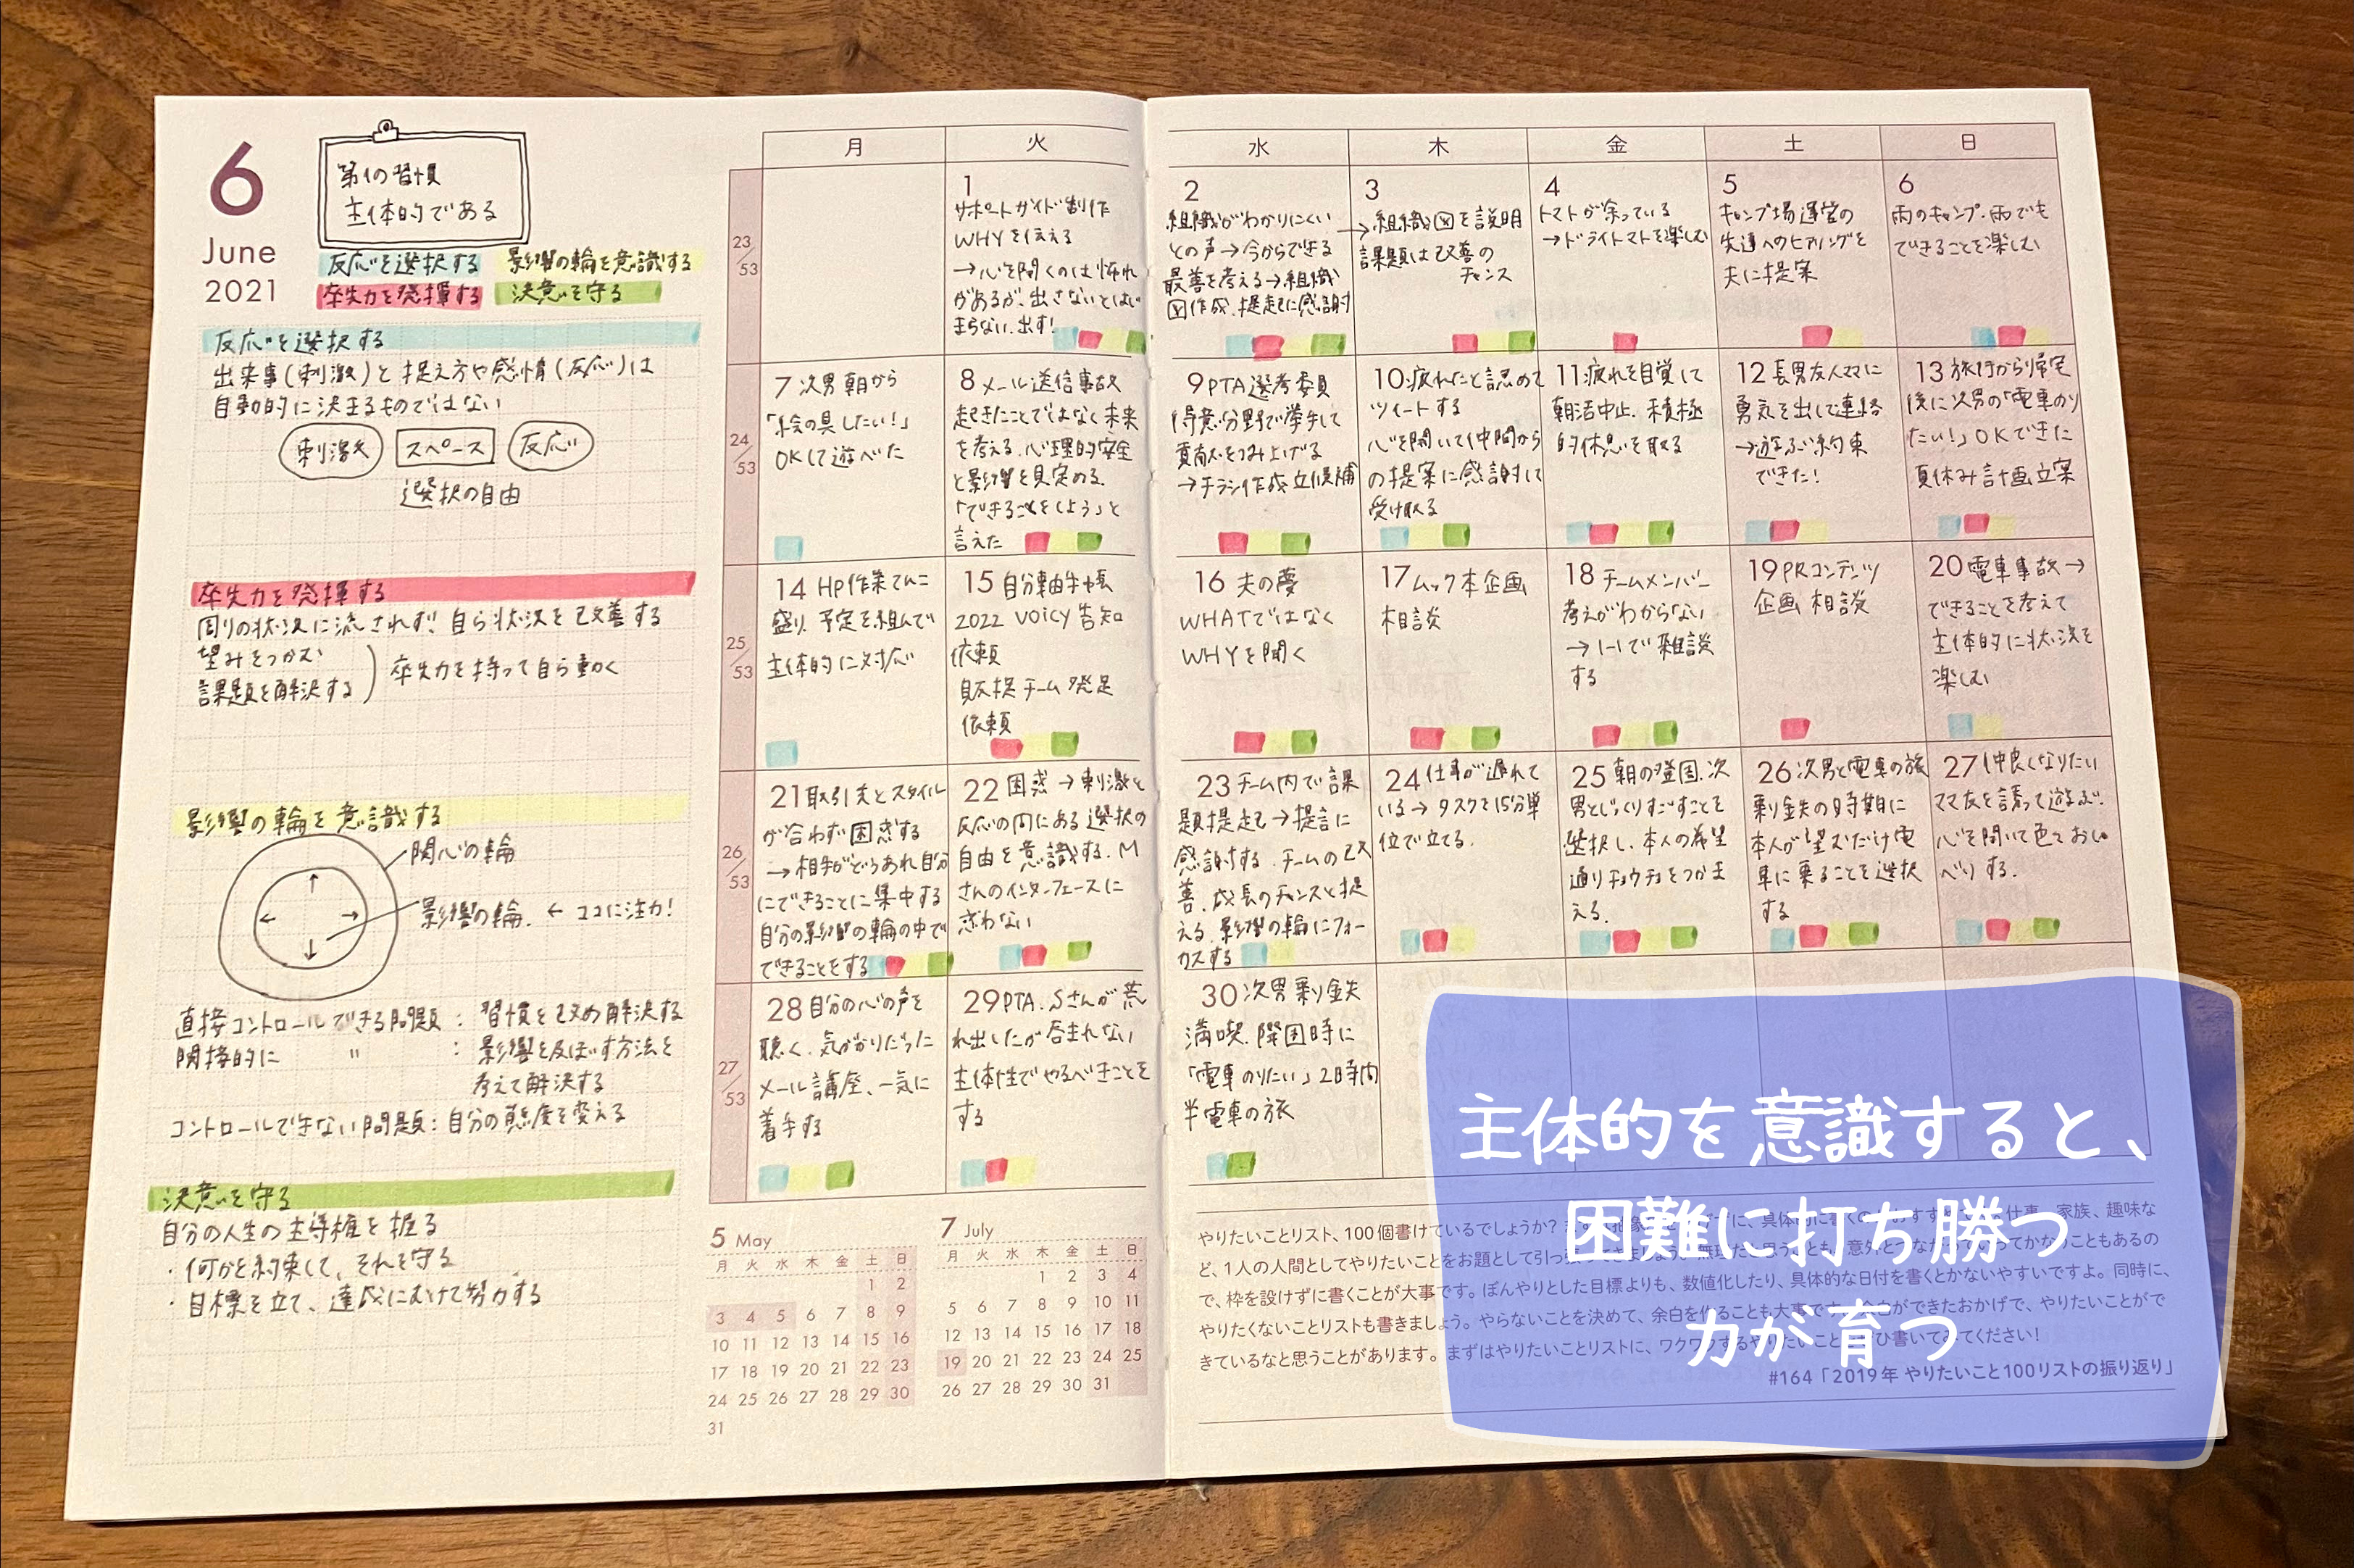 6
June
2021
第1の習慣
主体的である
反応を選択する 影響の輪を意識する
率先力を発揮する 決意を守る
反応を選択する
出来事(刺激)と捉え方や感情(反応)は
自動的に決まるものではない
刺激 スペース 反応
選択の自由
率先力を発揮する
周りの状況に流されず、自ら状況を改善する
望みをつかむ
課題を解決する
率先力を持って自ら動く
影響の輪を意識する
関心の輪
影響の輪. ← ココに注力!
直接コントロールできる問題: 習慣を改め解決する
間接的に 〃 : 影響を及ぼす方法を
考えて解決する
コントロールできない問題: 自分の態度を変える
決意を守る
自分の人生の主導権を握る
・何かを約束して、それを守る
・目標を立て、達成にむけて努力する
月 火 水 木 金 土 日
23/53
1
サポートガイド制作
WHYを伝える
→心を開くのは怖れ
があるが、出さないとはじ
まらない.出す!
2
組織がわかりにくい
との声→今からできる
最善を考える→組織
図作成.提起に感謝
3
→組織図を説明
課題は改善の
チャンス
4
トマトが余っている
→ドライトマトを楽しむ
5
キャンプ場運営の
先達へのヒアリングを
夫に提案
6
雨のキャンプ.雨でも
できることを楽しむ
24/53
7 次男朝から
「絵の具したい!」
OKして遊べた
8 メール送信事故
起きたことではなく未来
を考える.心理的安全
と影響を見定める.
「できることをしよう」と
言えた
9 PTA選考委員
得意分野で挙手して
貢献をつみ上げる
→チラシ作成立候補
10 疲れたと認めて
ツイートする
心を開いて仲間から
の提案に感謝して
受け取る
11 疲れを自覚して
朝活中止.積極
的休息を取る
12 長男友人ママに
勇気を出して連絡
→遊ぶ約束
できた!
13 旅行から帰宅
後に次男の「電車のり
たい!」OKできた
夏休み計画立案
25/53
14 HP作業てんこ
盛り.予定を組んで
主体的に対応
15 自分軸手帳
2022 VOICY告知
依頼
販促チーム発足
依頼
16 夫の夢
WHATではなく
WHYを聞く
17 ムック本企画
相談
18 チームメンバー
考えがわからない
→1-1で雑談
する
19 PRコンテンツ
企画相談
20 電車事故→
できることを考えて
主体的に状況を
楽しむ
26/53
21 取引先とスタイル
が合わず困惑する
→相手がどうあれ自分
にできることに集中する
自分の影響の輪の中で
できることをする
22 困惑→刺激と
反応の間にある選択の
自由を意識する.M
さんのインターフェースに
惑わない
23 チーム内で課
題提起→提言に
感謝する.チームの改
善.成長のチャンスと捉
える.影響の輪にフォー
カスする
24 仕事が遅れて
いる→タスクを15分単
位で立てる.
25 朝の登園.次
男とじっくりすごすことを
選択し.本人の希望
通りチョウチョをつかま
える.
26 次男と電車の旅
乗り鉄の時期に
本人が望むだけ電
車に乗ることを選択
する
27 仲良くなりたい
ママ友を誘って遊ぶ.
心を開いて色々おしゃ
べりする.
27/53
28 自分の心の声を
聴く.気がかりだった
メール講座、一気に
着手する
29 PTA.Sさんが荒
れ出したが呑まれない
主体性でやるべきことを
する
30 次男乗り鉄
満喫.降園時に
「電車のりたい」2時間
半電車の旅
5 May
月 火 水 木 金 土 日
1 2
3 4 5 6 7 8 9
10 11 12 13 14 15 16
17 18 19 20 21 22 23
24 25 26 27 28 29 30
31
7 July
月 火 水 木 金 土 日
1 2 3 4
5 6 7 8 9 10 11
12 13 14 15 16 17 18
19 20 21 22 23 24 25
26 27 28 29 30 31
やりたいことリスト、100個書けているでしょうか? 仕事、家族、趣味な
ど、1人の人間としてやりたいことをお題として引っ張ってきましょう。
で、枠を設けずに書くことが大事です。ぼんやりとした目標よりも、数値化したり、具体的な日付を書くとかないやすいですよ。同時に、
やりたくないことリストも書きましょう。やらないことを決めて、余白を作ることも大事です。余白ができたおかげで、やりたいことがで
きているなと思うことがあります。まずはやりたいことリストに、ワクワクするやりたいことをぜひ書いてみてください!
#164「2019年 やりたいこと100リストの振り返り」
主体的を意識すると、
困難に打ち勝つ
力が育つ